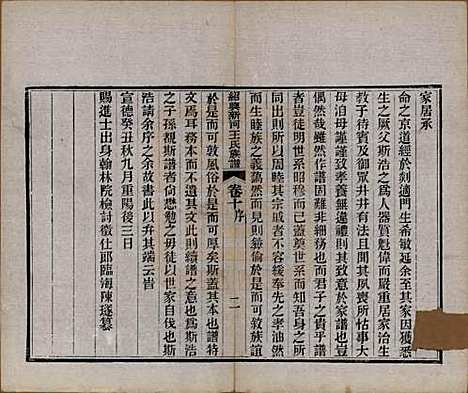 家居承
命之京道經於剡適門生希敏延余至其家因獲悉
生之厥父斯浩之為人器質魁偉而嚴重居家治生
教子待賓及御眾皆井井有法其夙喪所怙事大
母泊母謹謹致孝養無違禮則其致意於家譜也豈
偶然哉雖然作譜非細務也而君子之貴乎譜
者豈徒明世系昭穆而已蓋奠世系則知吾身之
同出則所以周睦其宗戚者不容緩奉先之孝油然
而生睦族之義藹然而見則彝倫於是而可敦族誼
於是而可敦風俗於是而可厚矣斯蓋其本而譜特
文焉耳務本而文從此則續譜之
之子孫覩斯譜者尚懋勉之毋徒以世家自伐也斯
浩請余序之余故書此以弁其端云旹
宣德癸丑秋九月重陽後三日
賜進士出身翰林院檢討徵仕郎臨海陳璲纂
紹興新河王氏族譜
卷十序
二